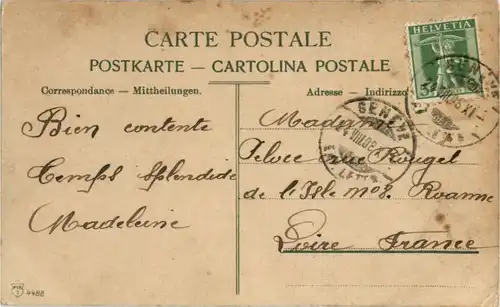 CARTE POSTALE
POSTKARTE — CARTOLINA POSTALE
Correspondance — Mittheilungen.
Adresse — Indirizzo
HELVETIA
GENÈVE
VIII.08
LETT
Bien contente
Temps splendide
Madeleine
Madame
rue Rougel
de l'Isle no 8. Roanne
Loire France
4488